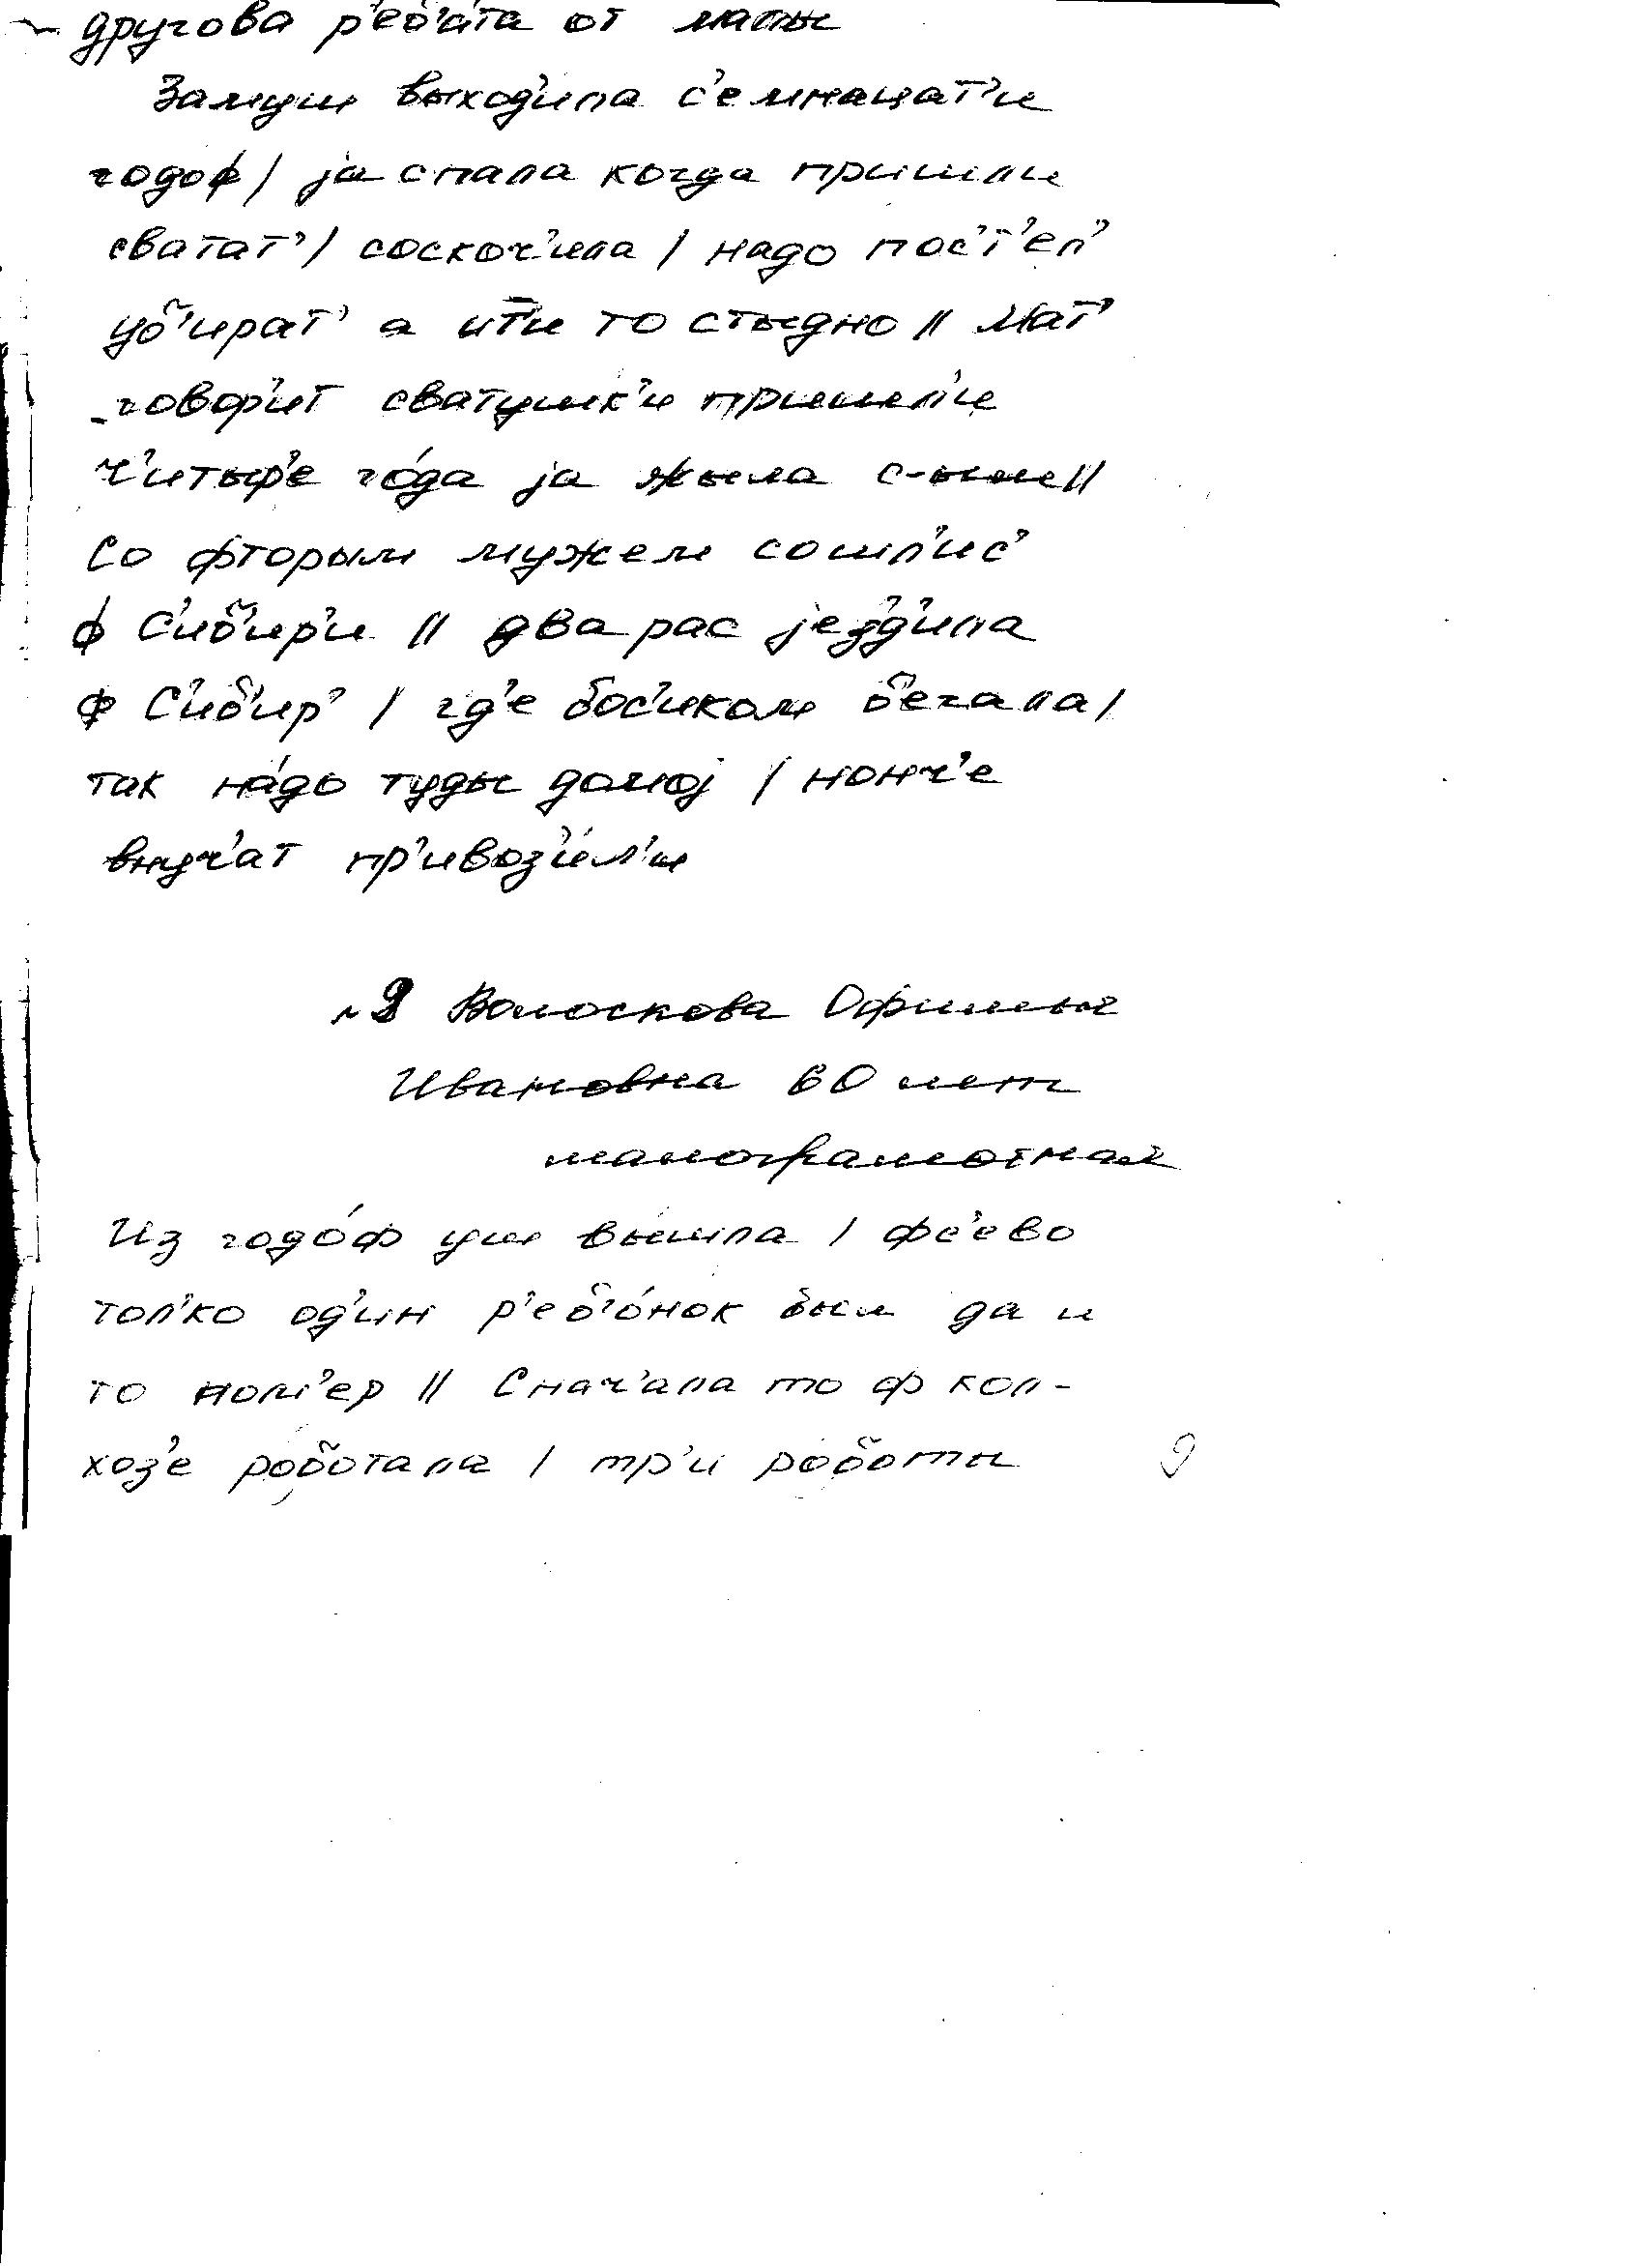 другова р'еб'ата от мапы
Замуш выходила с'емнацат'и
годоф / jа спала когда пришли
сватат' / соскоч'ила / надо пос'т'ел'
уб'ират' а ит̄и то стыдно // Мат'
говор'ит сватушк'и пришел'и
ч'итыр'е го́да jа жыла с-ым //
Со фторым мужем сошл'ис'
ф С'иб'ир'и // два рас jез'д'ила
ф С'иб'ир' / гд'е бос'иком б'егала /
так на́до туды домоj / нонч'е
внуч'ат пр'ивоз'и́л'и
Волоскова Офимья
Ивановна 60 лет
малограмотная
Из годо́ф уш вышла / фс'ево
тол'ко од'ин р'еб'о́нок был да и
то пом'ер // Снач'ала то ф кол-
хоз'е робо́тала / тр'и роботы
9